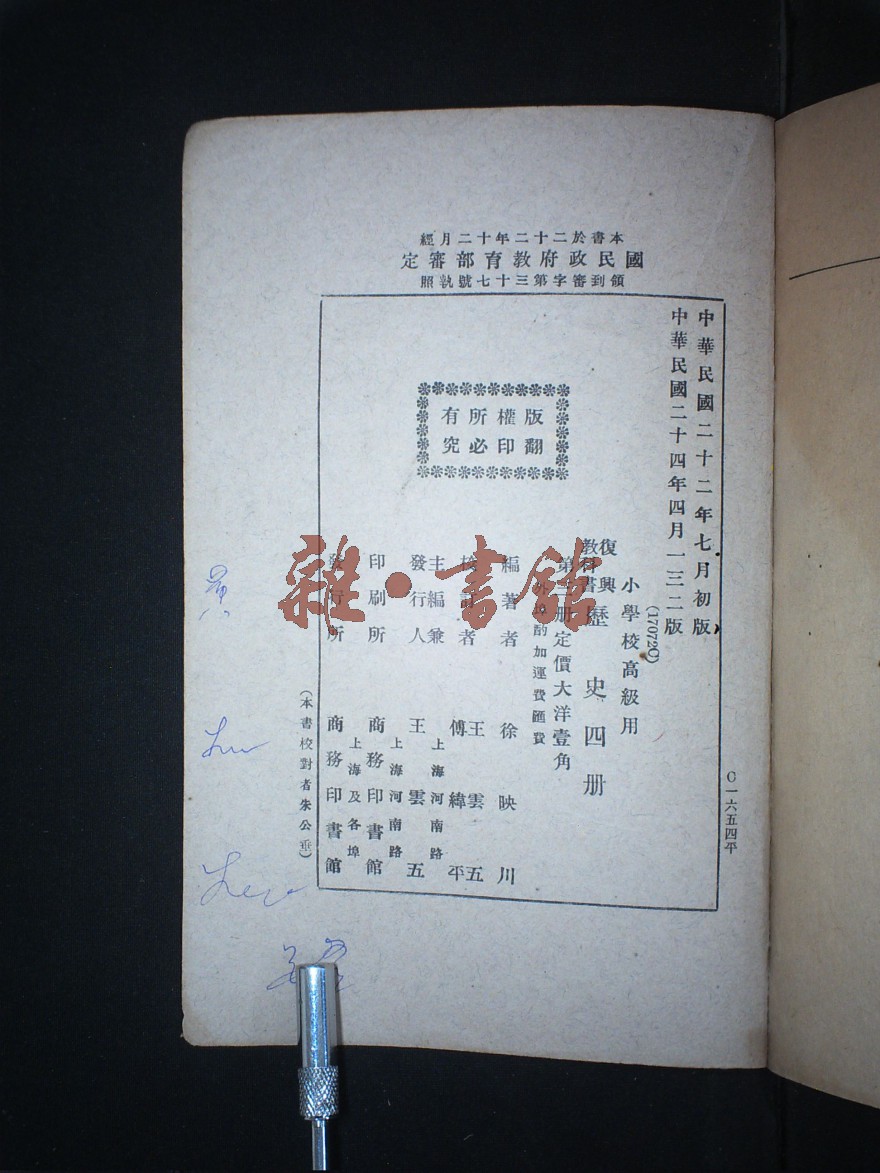 本書於二十二年十二月經
國民政府教育部審定
領到審字第三十七號執照
中華民國二十二年七月初版
中華民國二十四年四月一三二版
(17072C)
小學校高級用
復興教科書 歷史四册
第 册定價大洋壹角
外埠酌加運費匯費
版權所有
翻印必究
編著者 徐映川
校訂者 王雲五 傅緯平
主編兼發行人 上海河南路 王雲五
印刷所 上海河南路 商務印書館
發行所 上海及各埠 商務印書館
(本書校對者朱公垂)
C一六五四平
雜·書館